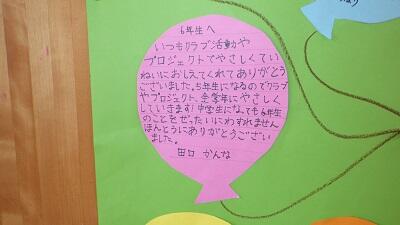 6年生へ
いつもクラブ活動や
プロジェクトでやさしくてい
ねいにおしえてくれてありがとう
ございました。5年生になるのでクラブ
やプロジェクト、全学年にやさしく
していきます!中学生になっても6年生
のことをぜったいにわすれません
ほんとうにありがとうござい
ました。
田口 かんな